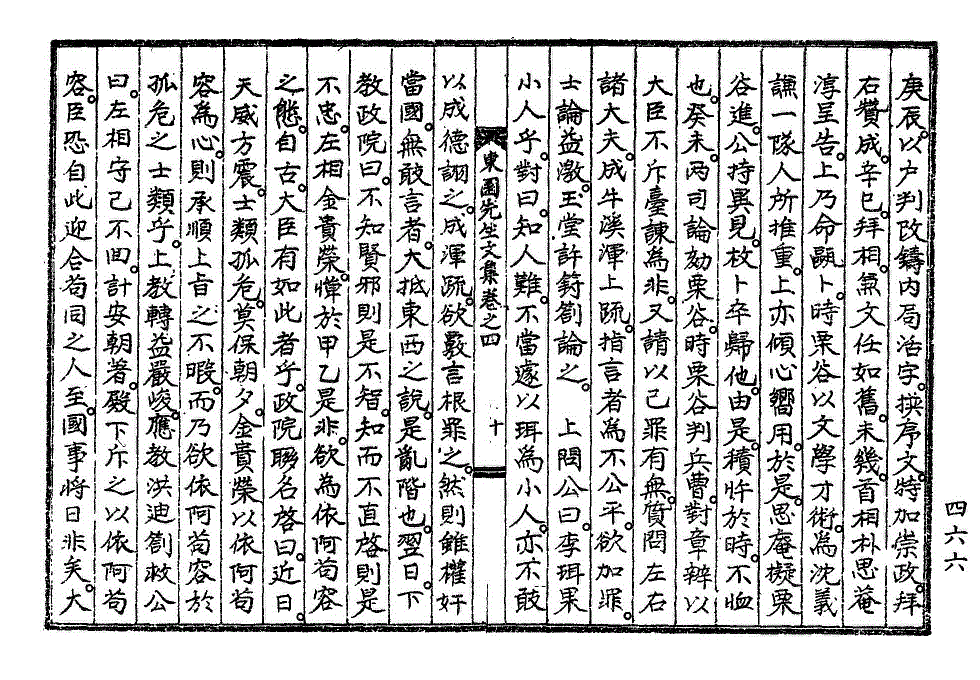 庚辰。以户判改鑄內局活字。撰序文。特加崇政。拜
右贊成。辛巳。拜相。兼文任如舊。未幾。首相朴思菴
淳呈告。上乃命甌卜。時栗谷以文學才術。為沈義
謙一隊人所推重。上亦傾心嚮用。於是。思庵擬栗
谷進。公持異見。枚卜卒歸他。由是。積忤於時。不恤
也。癸未。两司論劾栗谷。時栗谷判兵曹。對章辨以
大臣不斥臺諫為非。又請以己罪有無。質問左右
諸大夫。成牛溪渾上疏。指言者為不公平。欲加罪。
士論益激。玉堂許篈劄論之。 上問公曰。李珥果
小人乎。對曰。知人難。不當遽以珥為小人。亦不敢
東園先生文集卷之四 十
以成德詡之。成渾疏。欲覈言根罪之。然則雖權奸
當國。無敢言者。大抵東西之說。是亂階也。翌日。下
教政院曰。不知賢邪則是不智。知而不直啓則是
不忠。左相金貴榮。憚於甲乙是非。欲為依阿苟容
之態。自古大臣有如此者乎。政院聯名啓曰。近日。
天威方震。士類孤危。莫保朝夕。金貴榮以依阿苟
容為心。則承順上旨之不暇。而乃欲依阿苟容於
孤危之士類乎。上教轉益嚴峻。應教洪迪劄救公
曰。左相守己不回。計安朝著。殿下斥之以依阿苟
容。臣恐自此迎合苟同之人至。國事將日非矣。大
四六六